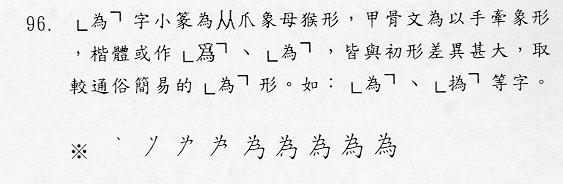 96. 「為」字小篆為从爪象母猴形，甲骨文為以手牽象形
，楷體或作「爲」、「為」，皆與初形差異甚大，取
較通俗簡易的「為」形。如：「為」、「撝」等字。
※ 丶 為